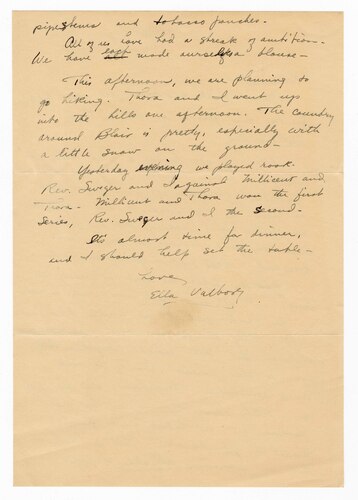 pipestems and tobacco pouches.
All of us have had a streak of ambition.
We have each made ourselves a blouse—
This afternoon, we are planning to
go hiking. Thora and I went up
into the hills one afternoon. The country
around Blair is pretty, especially with
a little snow on the ground—
Yesterday evening we played rook.
Rev. Swger and I against Millicent and
Thora. Millicent and Thora won the first
series, Rev. Swger and I the second.
Its almost time for dinner,
and I should help set the table—
Love,
Eila Valborg